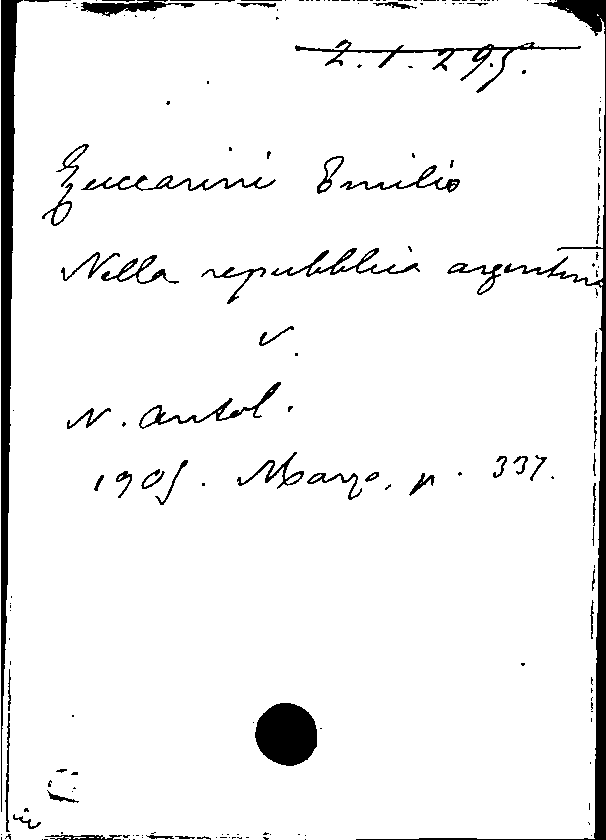 2.1.295.
Zuccarini Emilio
Nella repubblica argentina
v.
N. Antol.
1905. Marzo, p. 337.